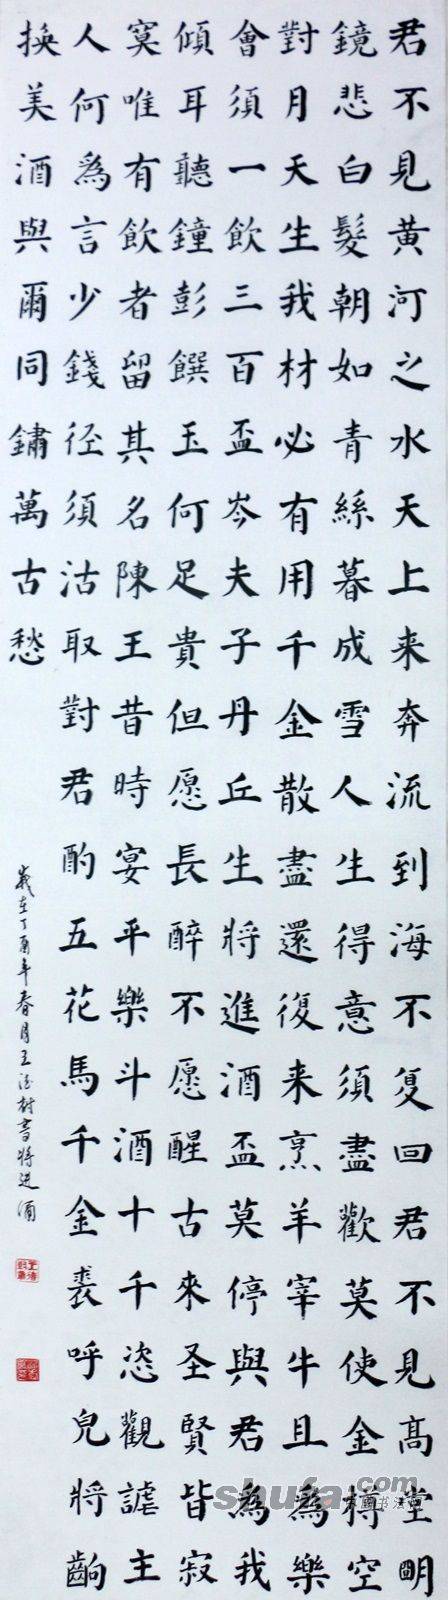 君不見黄河之水天上来奔流到海不复回君不見高堂明
鏡悲白髮朝如青絲暮成雪人生得意須盡歡莫使金樽空
對月天生我材必有用千金散盡還復来烹羊宰牛且為樂
會須一飲三百盃岑夫子丹丘生將進酒盃莫停與君為我
傾耳聽鐘彭饌玉何足貴但愿長醉不愿醒古來圣賢皆寂
寞唯有飲者留其名陳王昔時宴平樂斗酒十千恣觀謔主
人何為言少錢径須沽取對君酌五花馬千金裘呼兒將齣
换美酒與爾同鏽萬古愁
歲在丁酉年春月王書將進酒
shufa.com
中国书法网